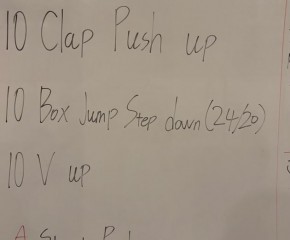 10 Clap Push up
10 Box Jump Step down (24/20)
10 V up